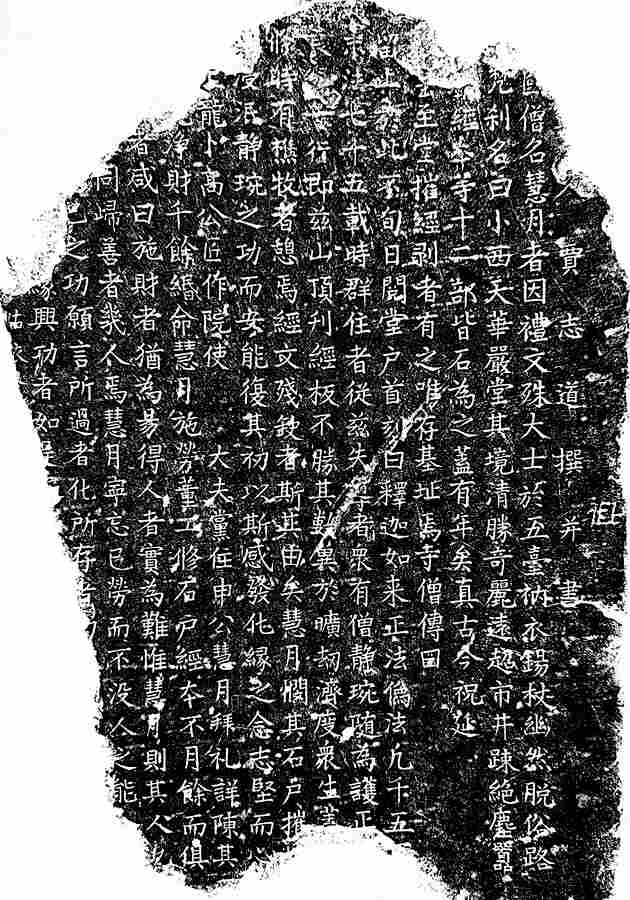 志道撰并書
僧名慧月者因禮文殊大士於五臺衲衣錫杖幽然脫俗路
兜利名曰小西天華嚴堂其境清勝奇麗遠超市井踈絕塵囂
經本等十二部皆石為之蓋有年矣真古今祝延
至堂摧經剥者有之唯存基址焉寺僧傳曰
留止於此不旬日閱堂户首刻曰釋迦如来正法像法凡千五
末法七十五載時群住者從兹失導者衆有僧静琬隨為護正
行即兹山頂刊經板不勝其數冀於曠劫濟度衆生蓋
時有樵牧者憩焉經文殘缺者斯其由矣慧月憫其石户摧
泯静琬之功而安能復其初以斯感發化緣之念志堅而心
龍卜高公匠作院使 大夫黨住申公慧月拜礼詳陳其
淨財千餘緡命慧月施勞董工修石户經本不月餘而俱
者咸曰施財者猶為易得人者實為難惟慧月則其人也
同歸善者幾人焉慧月寧忘已勞而不没人之能
己之功願言所過者化所存者
緣興功者如是